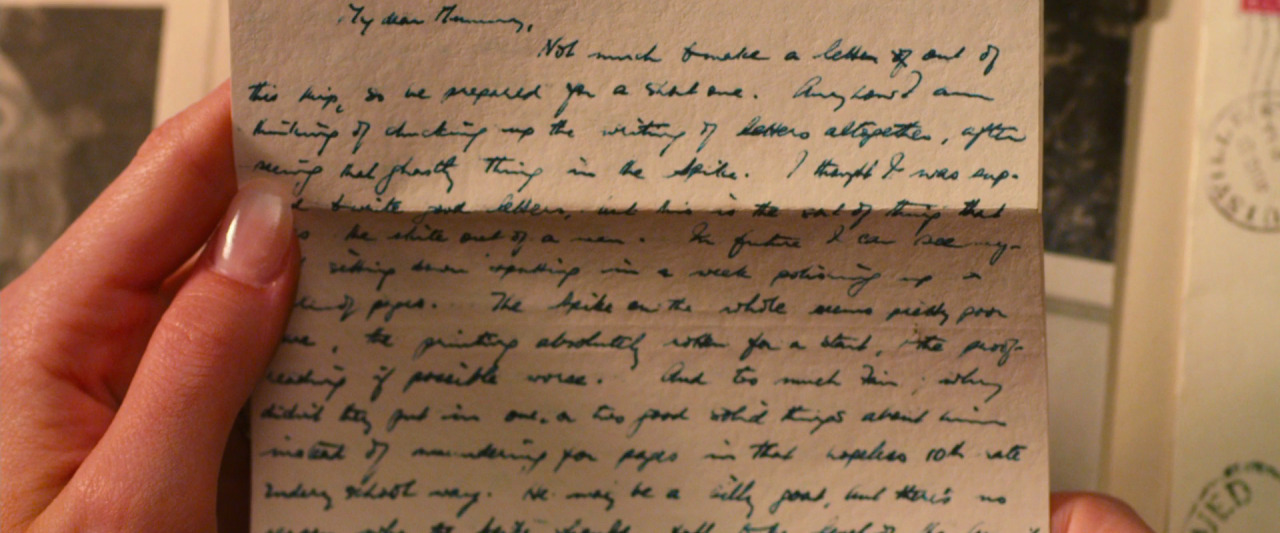 My dear Mummy,
Not much to make a letter of out of
this trip, so be prepared for a short one. Anyhow I am
thinking of chucking up the writing of letters altogether, after
seeing that ghastly thing in the Spike. I thought I was sup-
to write good letters, but this is the sort of thing that
the out of a man. In future I can see my-
sitting down sparing in a week polishing up a
of pages. The Spike on the whole seems pretty poor
, the printing absolutely rotten for a start, the proof-
reading if possible worse. And too much Tim: why
didn't they put in one or two good solid things about him
instead of maundering for pages in that hopeless 10th rate
Sunday school way. He may be a silly goat, but there's no
reason why the Spike should fall to the level of the